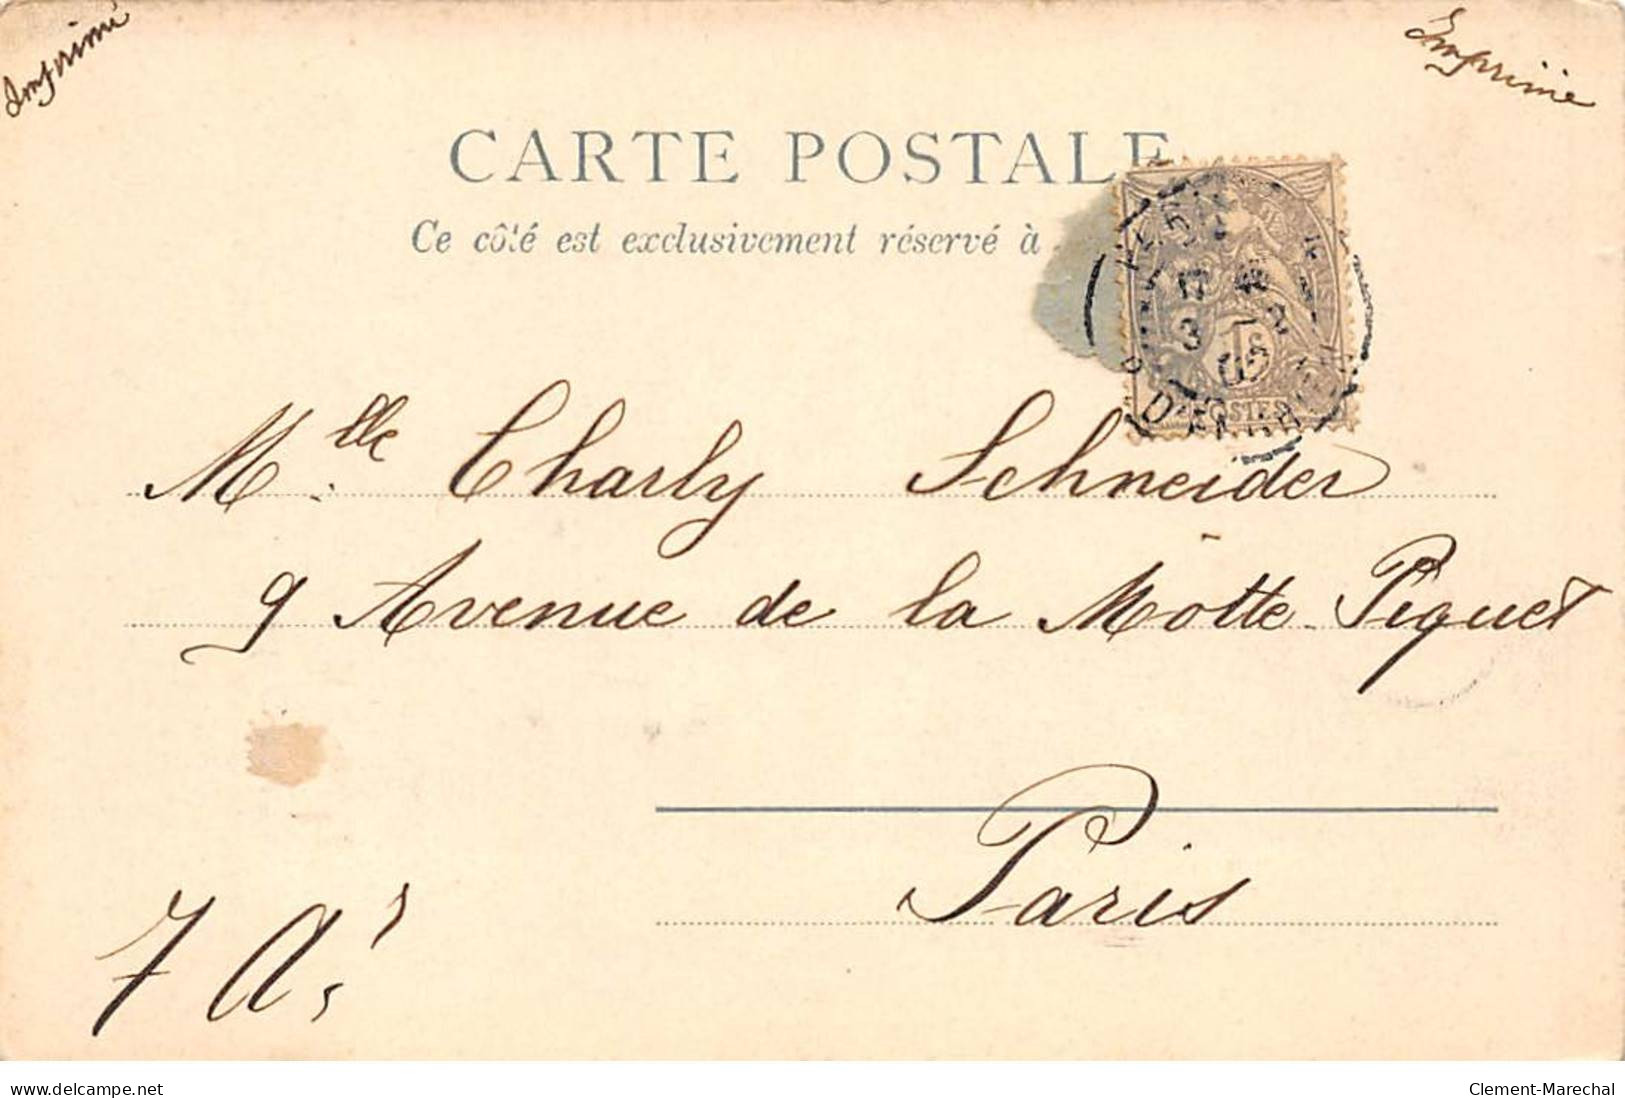 Imprimé
Imprimé
CARTE POSTALE
Ce côté est exclusivement réservé à
17 40
3 - 2
02
1c
POSTES
Mlle. Charly Schneider
9 Avenue de la Motte Piquet
Paris
7 A.
www.delcampe.net
Clement-Marechal